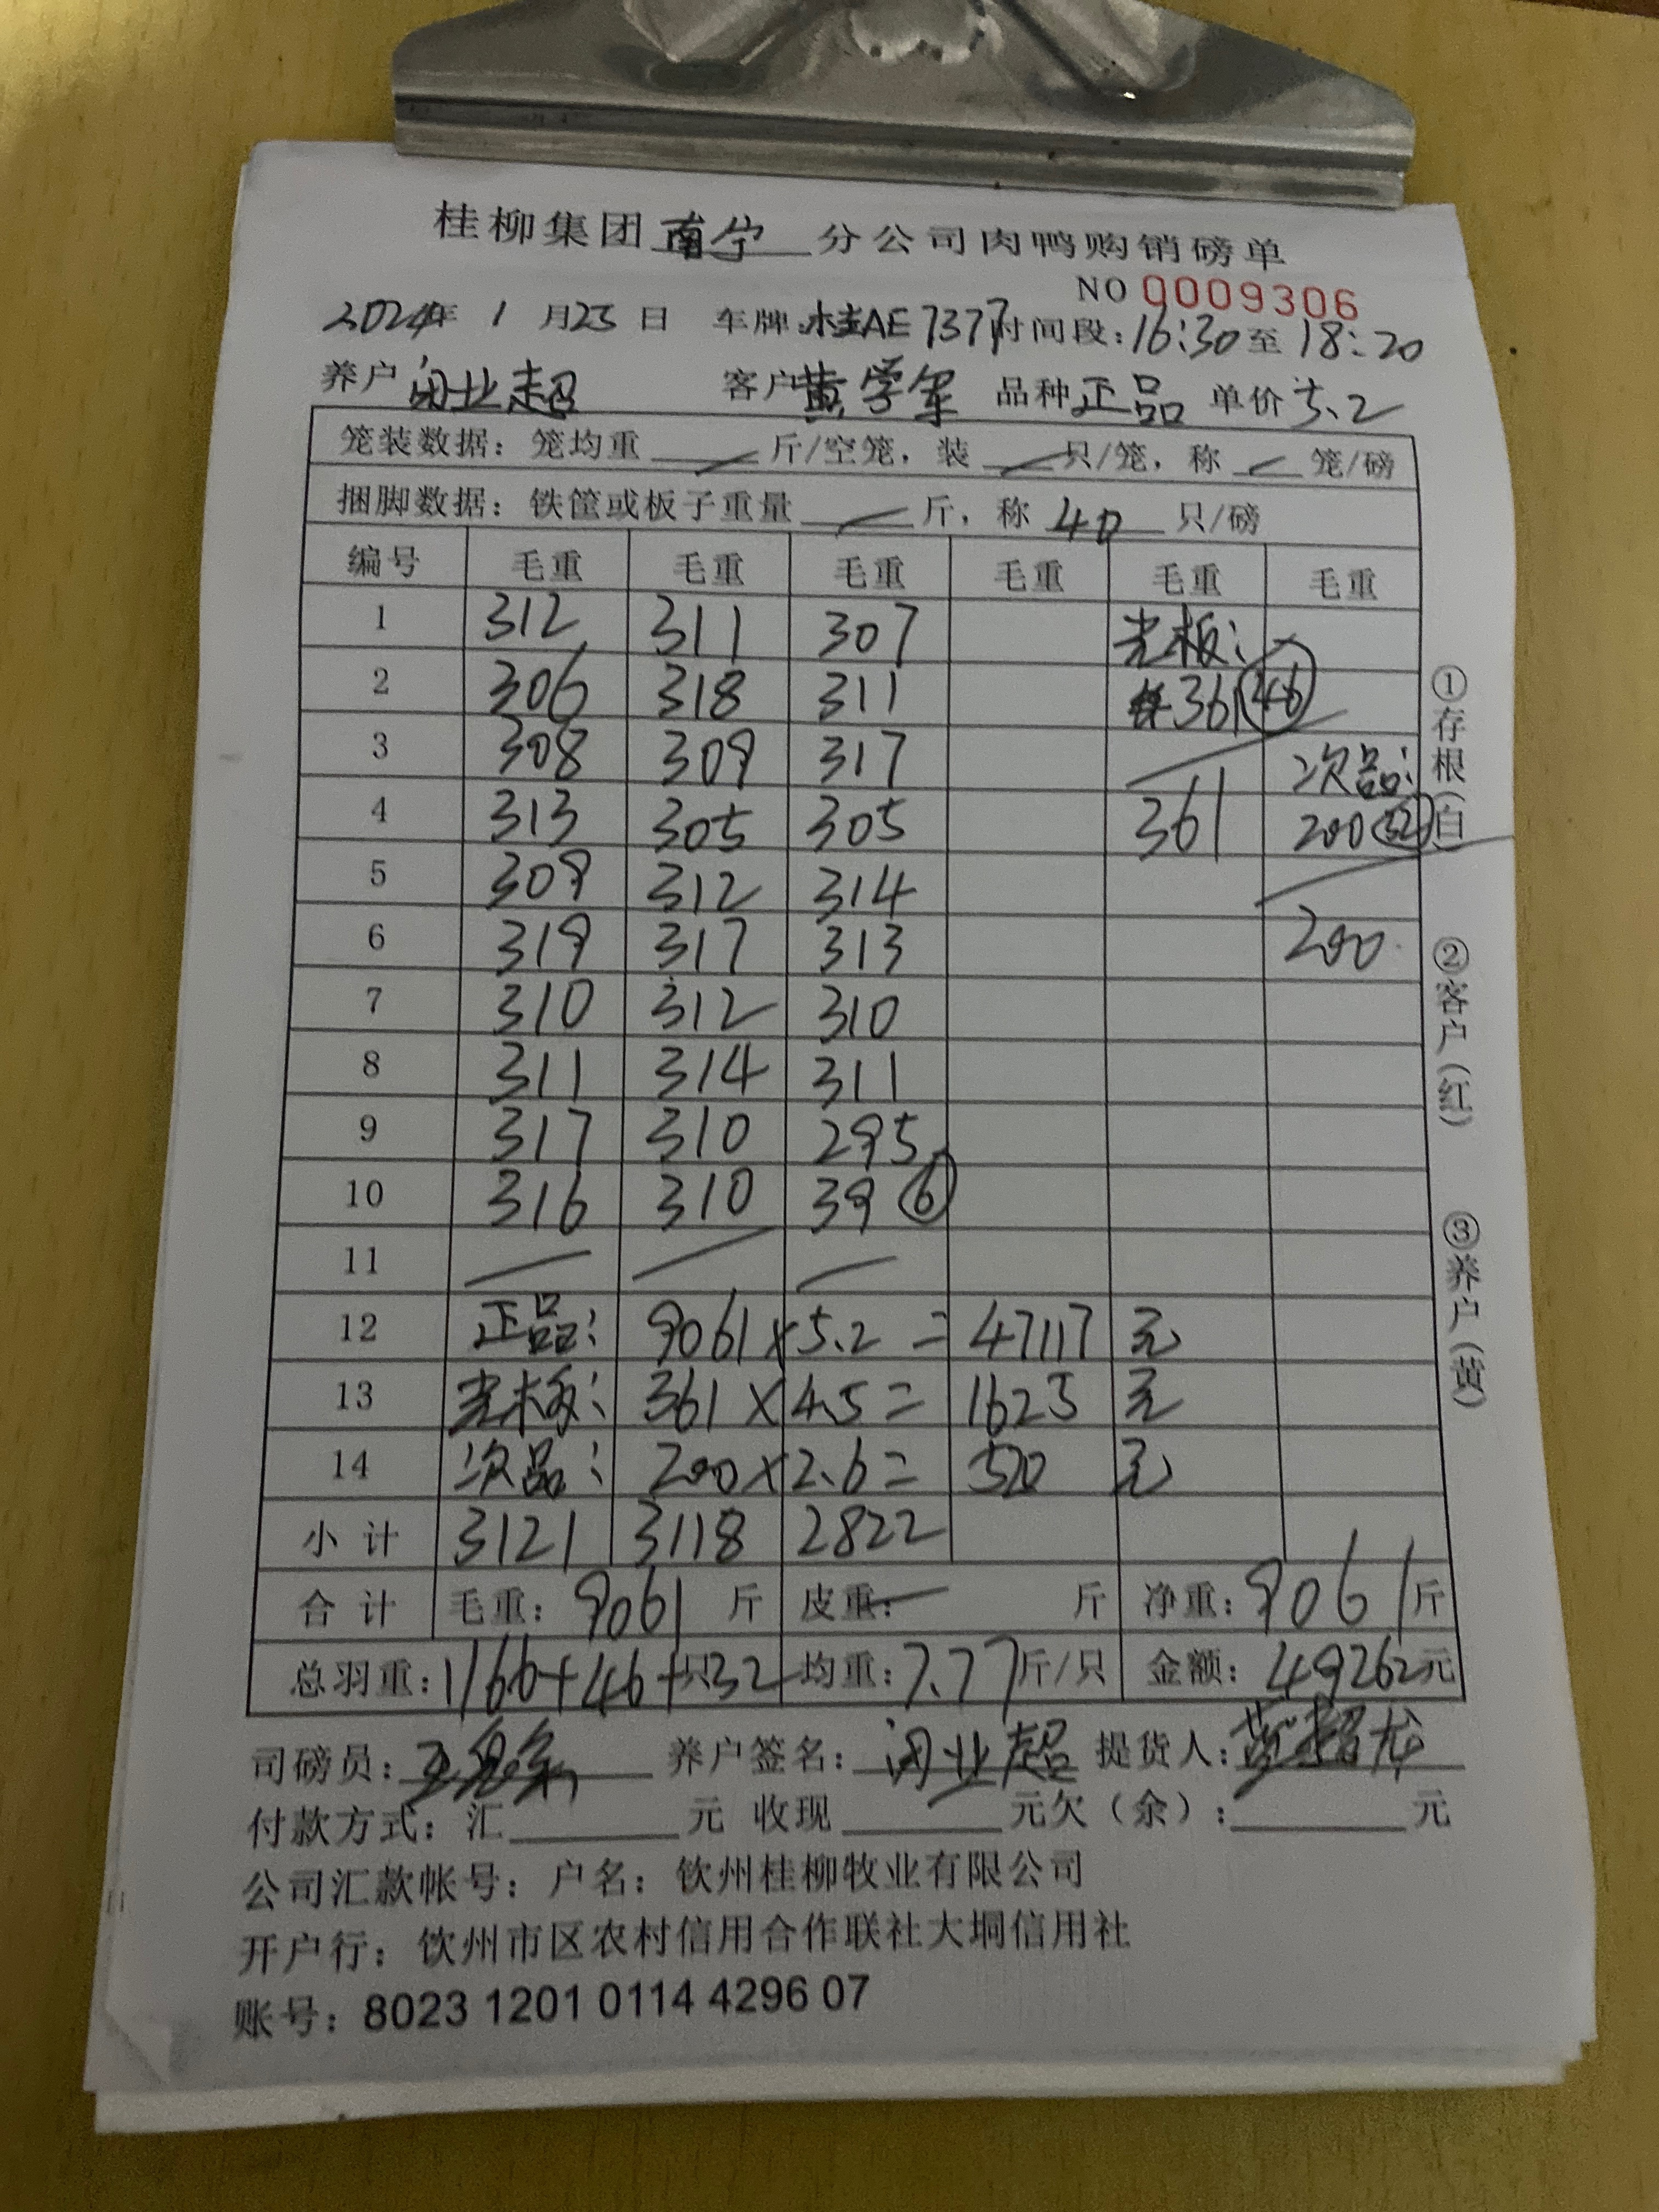 桂柳集团南宁分公司肉鸭购销磅单
NO 0009306
2024年 1 月 25 日 车牌:桂AE7377 时间段:16:30至18:20
养户 闭业超 客户 黄学军 品种 正品 单价 5.2
笼装数据:笼均重 / 斤/空笼,装 / 只/笼,称 / 笼/磅
捆脚数据:铁筐或板子重量 / 斤,称 40 只/磅
编号 毛重 毛重 毛重 毛重 毛重 毛重
1 312 311 307 光板:
2 306 318 311 361 46
3 308 309 317 次品:
4 313 305 305 361 200 32
5 309 312 314
6 319 317 313 200
7 310 312 310
8 311 314 311
9 317 310 295
10 316 310 39 6
11 / / /
12 正品: 9061×5.2= 47117 元
13 光板: 361×4.5= 1625 元
14 次品: 200×2.6= 520 元
小计 3121 3118 2822
合计 毛重:9061 斤 皮重:— 斤 净重:9061斤
总羽重:1166+46+只32 均重:7.77斤/只 金额:49262元
司磅员: 养户签名:闭业超 提货人:
付款方式:汇 元 收现 元欠(余): 元
公司汇款帐号:户名:钦州桂柳牧业有限公司
开户行:钦州市区农村信用合作联社大垌信用社
账号:8023 1201 0114 4296 07
①存根(白)
②客户(红)
③养户(黄)